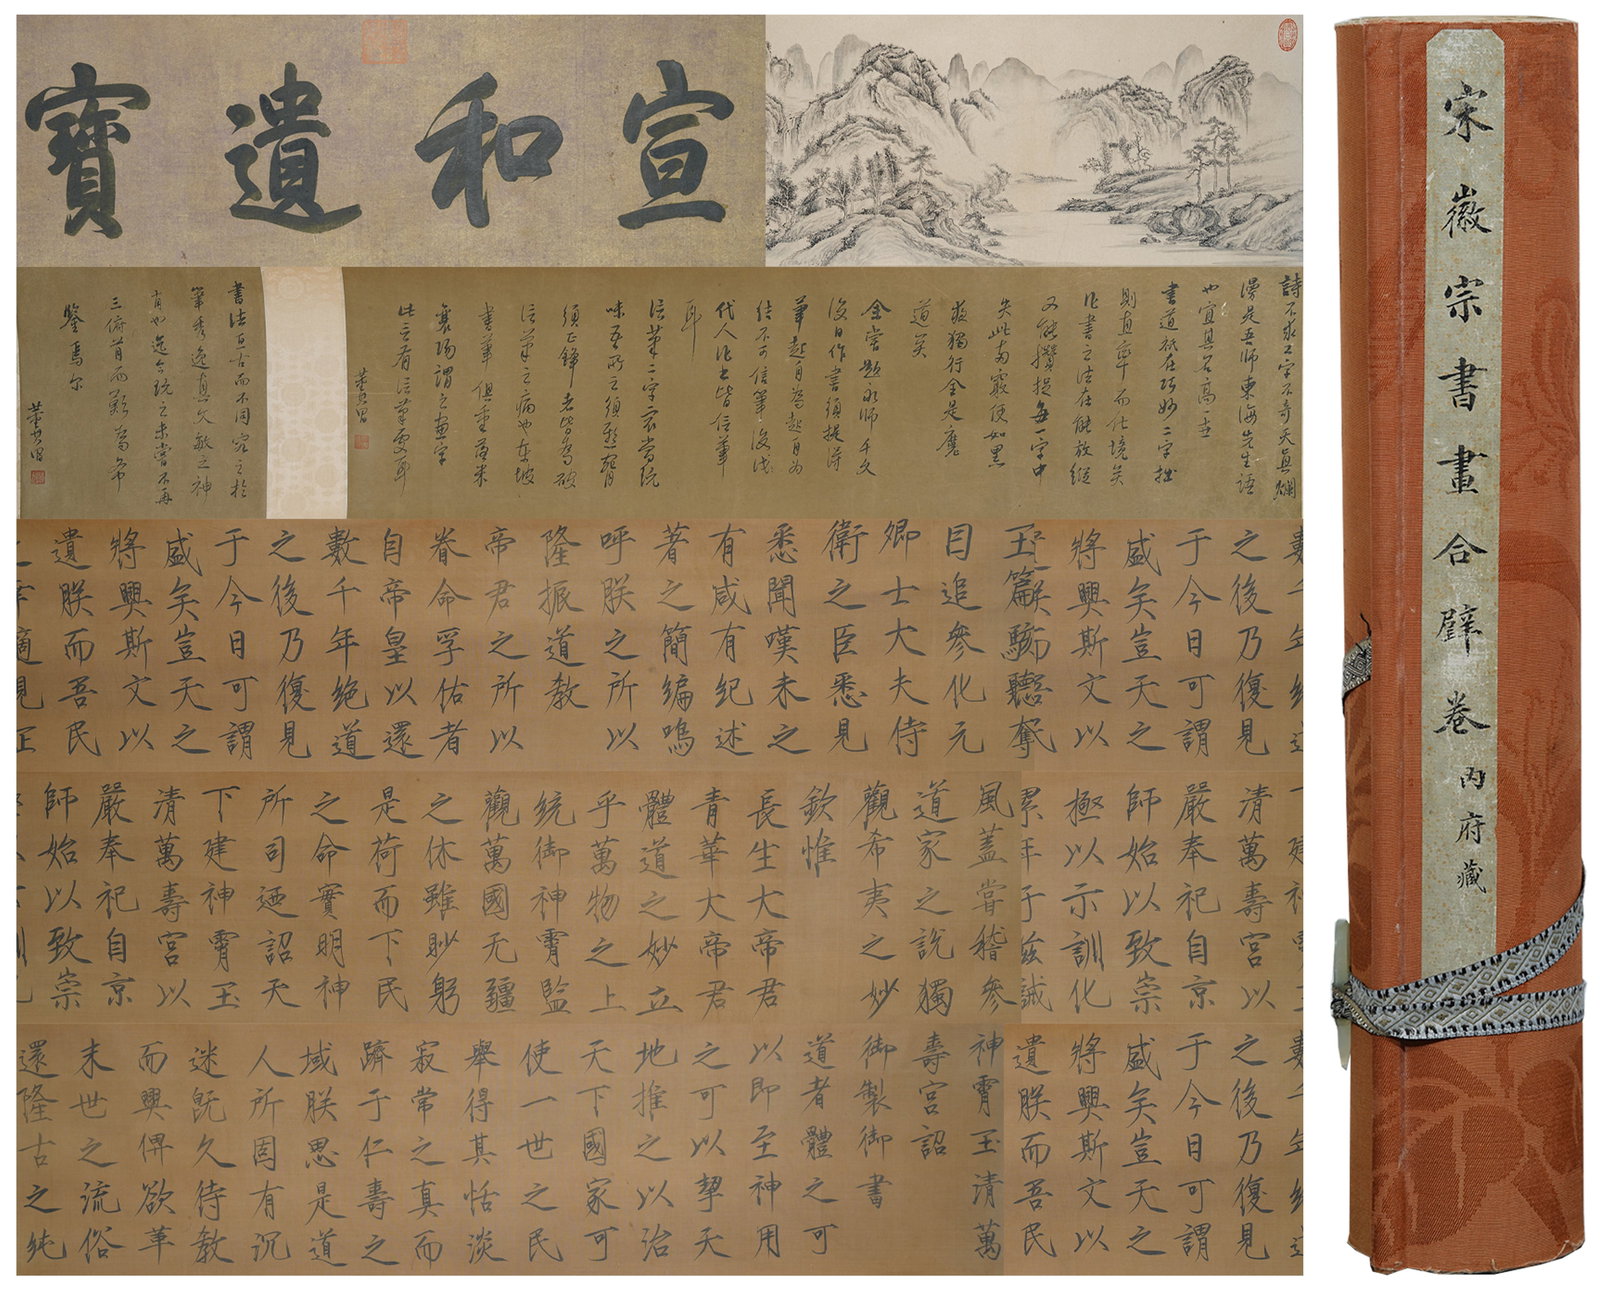 宣和遺寶
詩不求工字不奇天真爛
漫是吾師東海先生語
也宜其名高一世
書道祇在巧妙二字拙
則直率而化境矣
作書之法在能放縱
又能攢捉每一字中
失此兩竅便如黑
夜獨行全是魔
道矣
余嘗題永師千文
後曰作書須提得
筆起自為起自為
結不可信筆後
代人作書皆信筆
耳
信筆二字最當玩
味吾所云須懸
須正鋒者皆為破
信筆之病也東坡
書筆俱重落米
襄陽謂之畫字
此言有信筆處耳
董其昌
書法亘古而不同究之於
筆秀逸真文敏之神
有也逸今玩之未嘗不再
三俯首而歎為希
鑒焉尔
董其昌
之後乃復見
于今日可謂
盛矣豈天之
將興斯文以
目追參化元
卿士大夫侍
衛之臣悉見
悉聞嘆未之
有咸有紀述
著之簡編嗚
呼朕之所以
隆振道教
帝君之所以
眷命孚佑者
自帝皇以還
數千年絕道
之後乃復見
于今日可謂
盛矣豈天之
將興斯文以
遺朕而吾民
清萬壽宮以
嚴奉祀自京
師始以致崇
極以示訓化
累年于茲誠
風蓋嘗稽參
道家之說獨
觀希夷之妙
欽惟
長生大帝君
青華大帝君
體道之妙立
乎萬物之上
統御神霄監
觀萬國无疆
之休雖眇躬
是荷而下民
之命實明神
所司迺詔天
下建神霄玉
清萬壽宮以
嚴奉祀自京
師始以致崇
之後乃復見
于今日可謂
盛矣豈天之
將興斯文以
遺朕而吾民
神霄玉清萬
壽宮詔
御製御書
道者體之可
以即至神用
之可以挈天
地推之以治
天下國家可
使一世之民
舉得其恬淡
寂常之真而
躋于仁壽之
域朕思是道
人所固有沉
迷既久待教
而興俾欲革
末世之流俗
還隆古之純
宋徽宗書畫合璧卷 內府藏